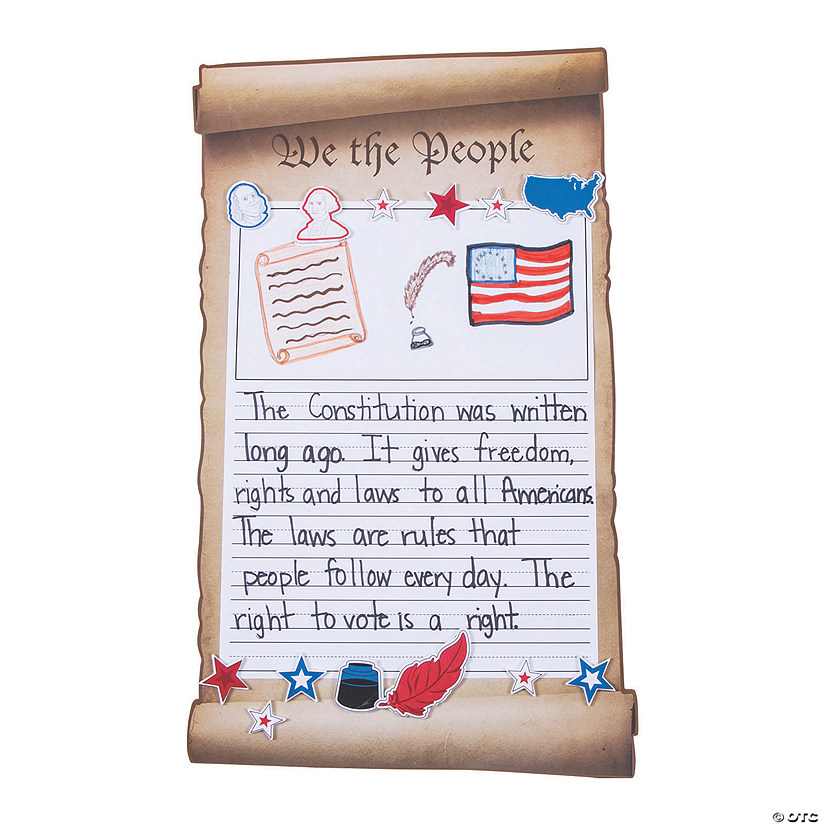 We the People
The Constitution was written
long ago. It gives freedom,
rights and laws to all Americans.
The laws are rules that
people follow every day. The
right to vote is a right.
© OTC